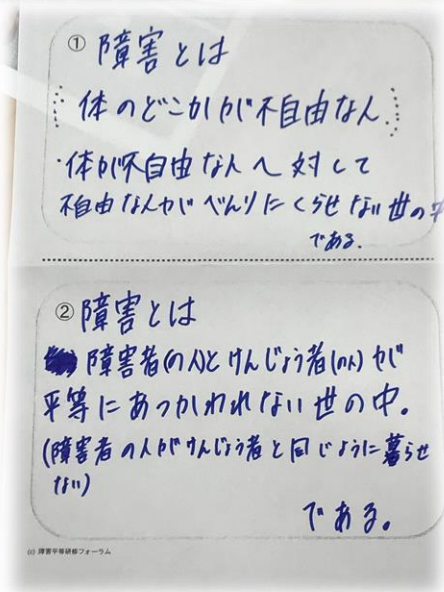 ① 障害とは
体のどこかが不自由な人
・体が不自由な人へ対して
不自由な人がべんりにくらせない世の中
である.
② 障害とは
障害者(の人)とけんじょう者(の人)が
平等にあつかわれない世の中。
(障害者の人がけんじょう者と同じように暮らせ
ない)
である。
(c) 障害平等研修フォーラム